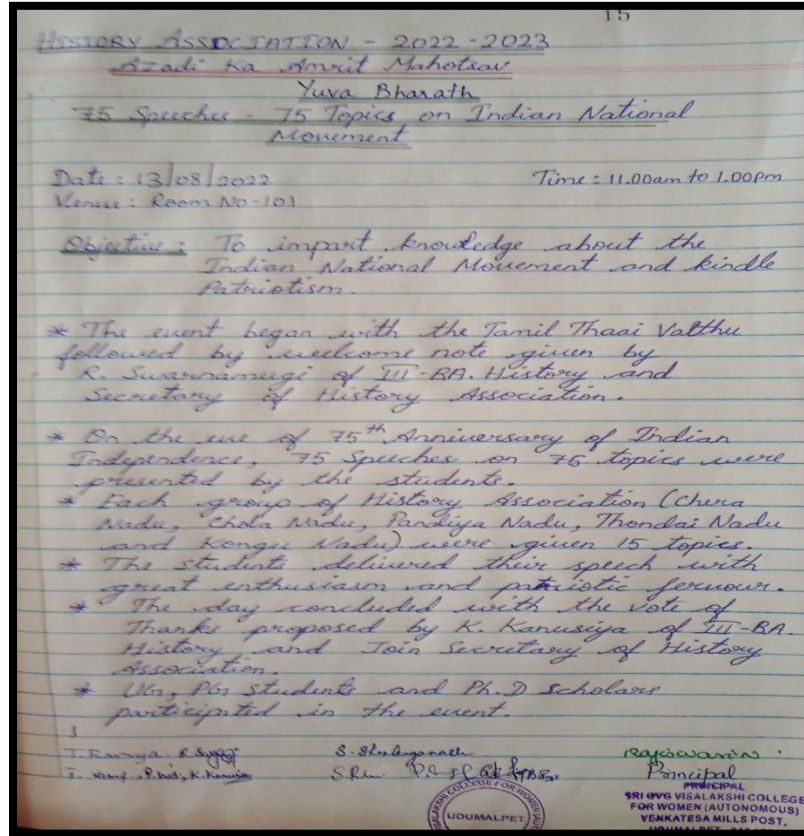 15
HISTORY ASSOCIATION - 2022-2023
Azadi Ka Amrit Mahotsav
Yuva Bharath
75 Speeches - 75 Topics on Indian National
Movement
Date : 13/08/2022
Time : 11.00am to 1.00pm
Venue : Room No-101
Objective : To impart knowledge about the
Indian National Movement and kindle
Patriotism.
* The event began with the Tamil Thaai Valthu
followed by welcome note given by
R. Swarnamugi of III-BA. History and
Secretary of History Association.
* On the eve of 75th Anniversary of Indian
Independence, 75 Speeches on 75 topics were
presented by the students.
* Each group of History Association (Chera
Nadu, Chola Nadu, Pandiya Nadu, Thondai Nadu
and Kongu Nadu) were given 15 topics.
* The students delivered their speech with
great enthusiasm and patriotic fervour.
* The day concluded with the vote of
Thanks proposed by K. Kanusiya of III-BA.
History and Join Secretary of History
Association.
* UG, PG students and Ph.D scholars
participated in the event.
Principal
PRINCIPAL
SRI GVG VISALAKSHI COLLEGE
FOR WOMEN (AUTONOMOUS)
VENKATESA MILLS POST,
COLLEGE FOR WOMEN
UDUMALPET